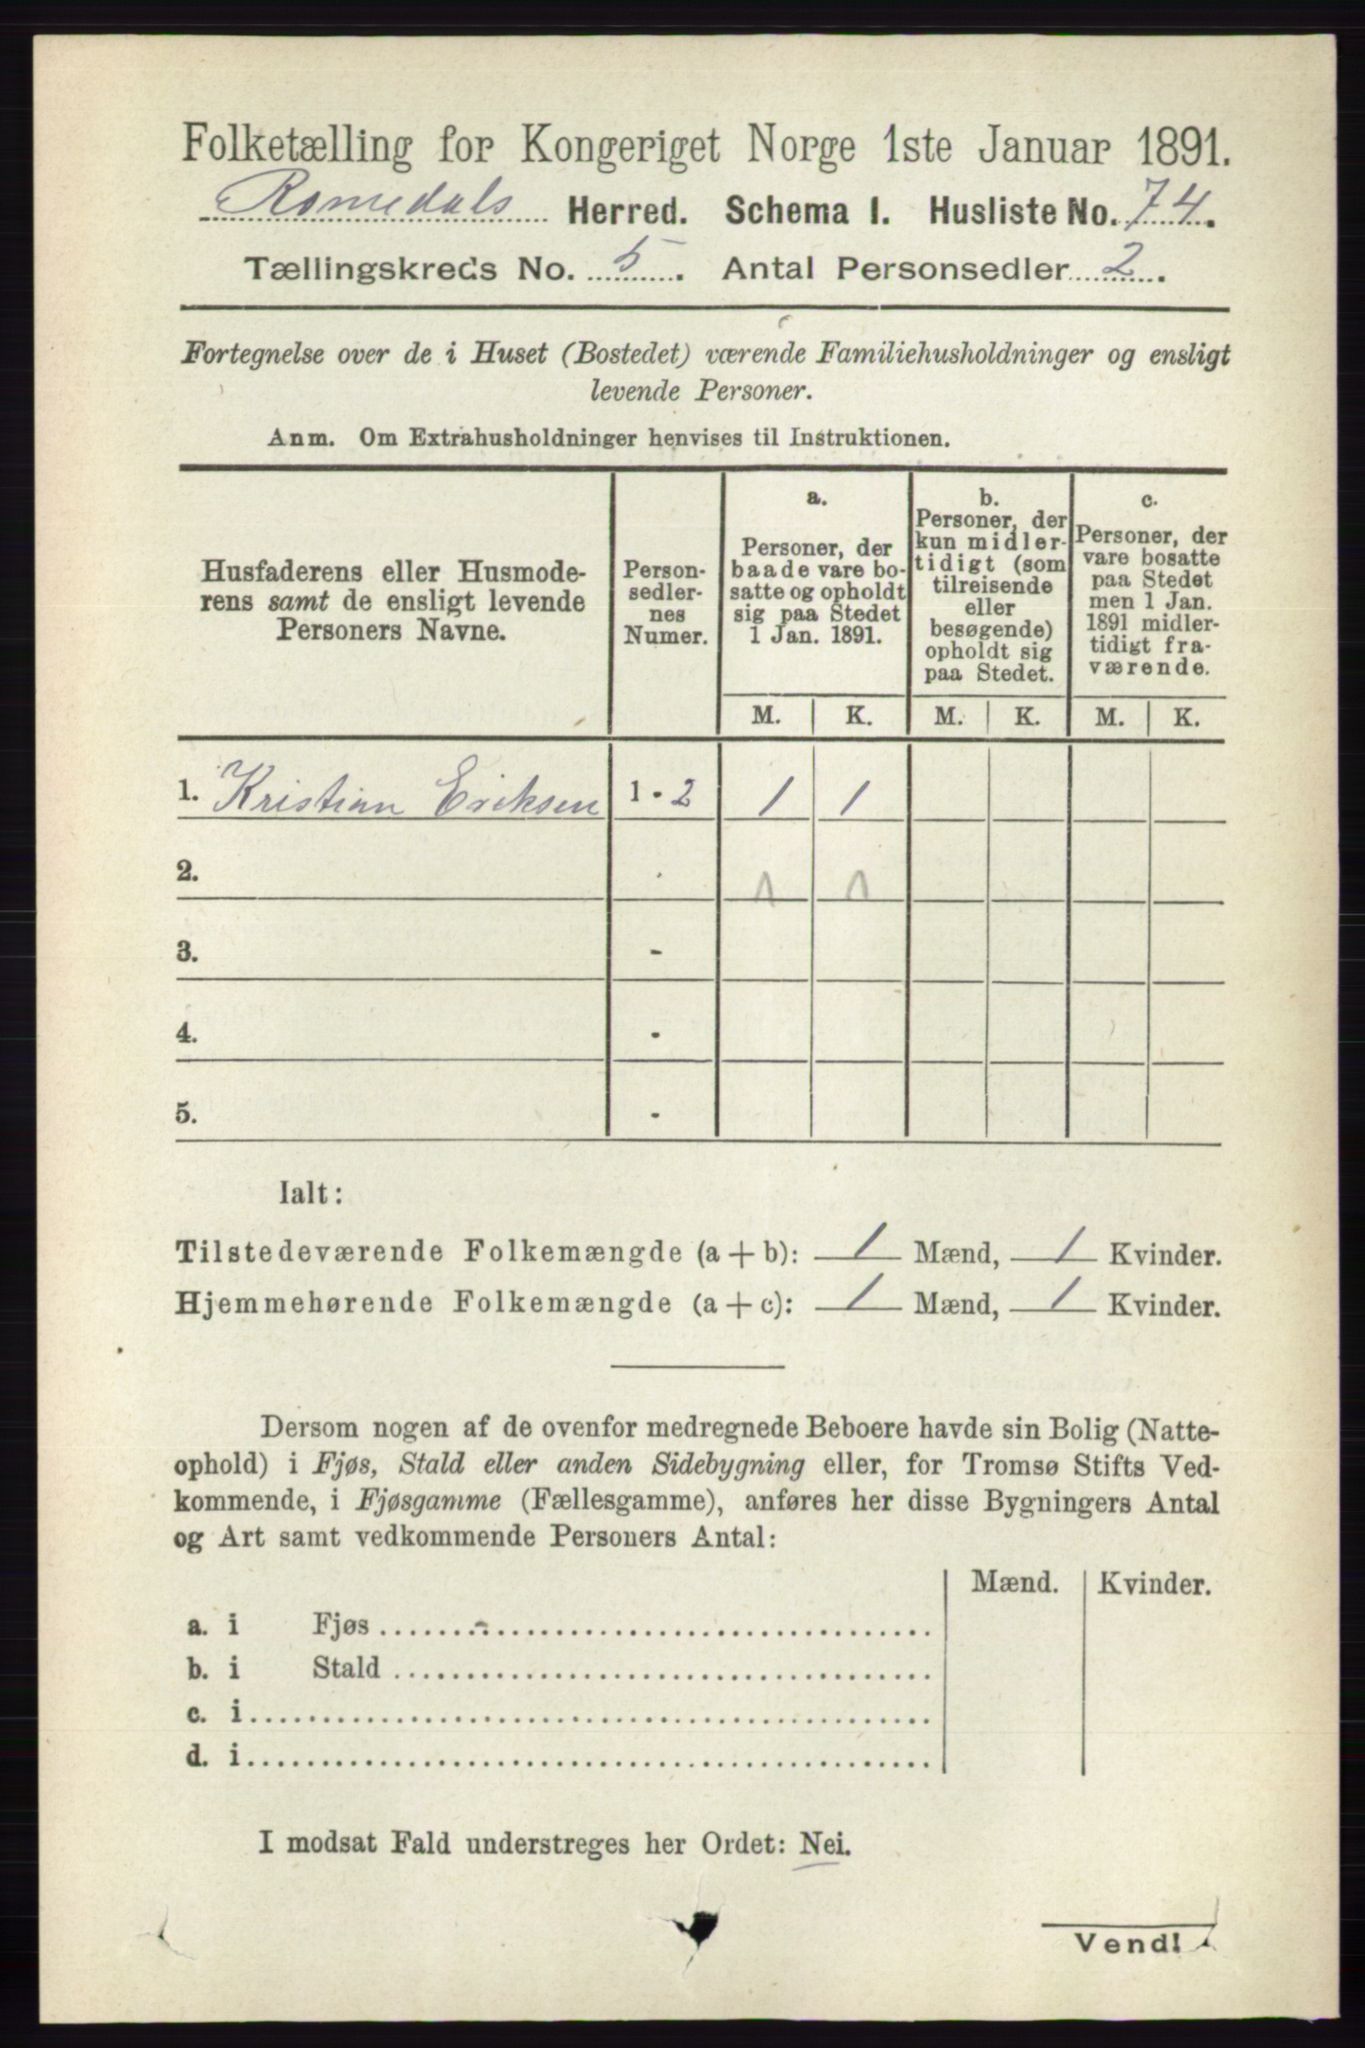 Folketælling for Kongeriget Norge 1ste Januar 1891.
Romedals Herred. Schema I. Husliste No. 74.
Tællingskreds No. 5. Antal Personsedler 2.
Fortegnelse over de i Huset (Bostedet) værende Familiehusholdninger og ensligt
levende Personer.
Anm. Om Extrahusholdninger henvises til Instruktionen.
Husfaderens eller Husmode-
rens samt de ensligt levende
Personers Navne.
Person-
sedler-
nes
Numer.
a.
Personer, der
baade vare bo-
satte og opholdt
sig paa Stedet
1 Jan. 1891.
b.
Personer, der
kun midler-
tidigt (som
tilreisende
eller
besøgende)
opholdt sig
paa Stedet.
c.
Personer, der
vare bosatte
paa Stedet
men 1 Jan.
1891 midler-
tidigt fra-
værende.
M. K. M. K. M. K.
1. Kristian Eriksen 1 - 2 1 1
2. -
3. -
4. -
5. -
Ialt:
Tilstedeværende Folkemængde (a + b): 1 Mænd, 1 Kvinder.
Hjemmehørende Folkemængde (a + c): 1 Mænd, 1 Kvinder.
Dersom nogen af de ovenfor medregnede Beboere havde sin Bolig (Natte-
ophold) i Fjøs, Stald eller anden Sidebygning eller, for Tromsø Stifts Ved-
kommende, i Fjøsgamme (Fællesgamme), anføres her disse Bygningers Antal
og Art samt vedkommende Personers Antal:
Mænd. Kvinder.
a. i Fjøs
b. i Stald
c. i
d. i
I modsat Fald understreges her Ordet: Nei.
Vend!